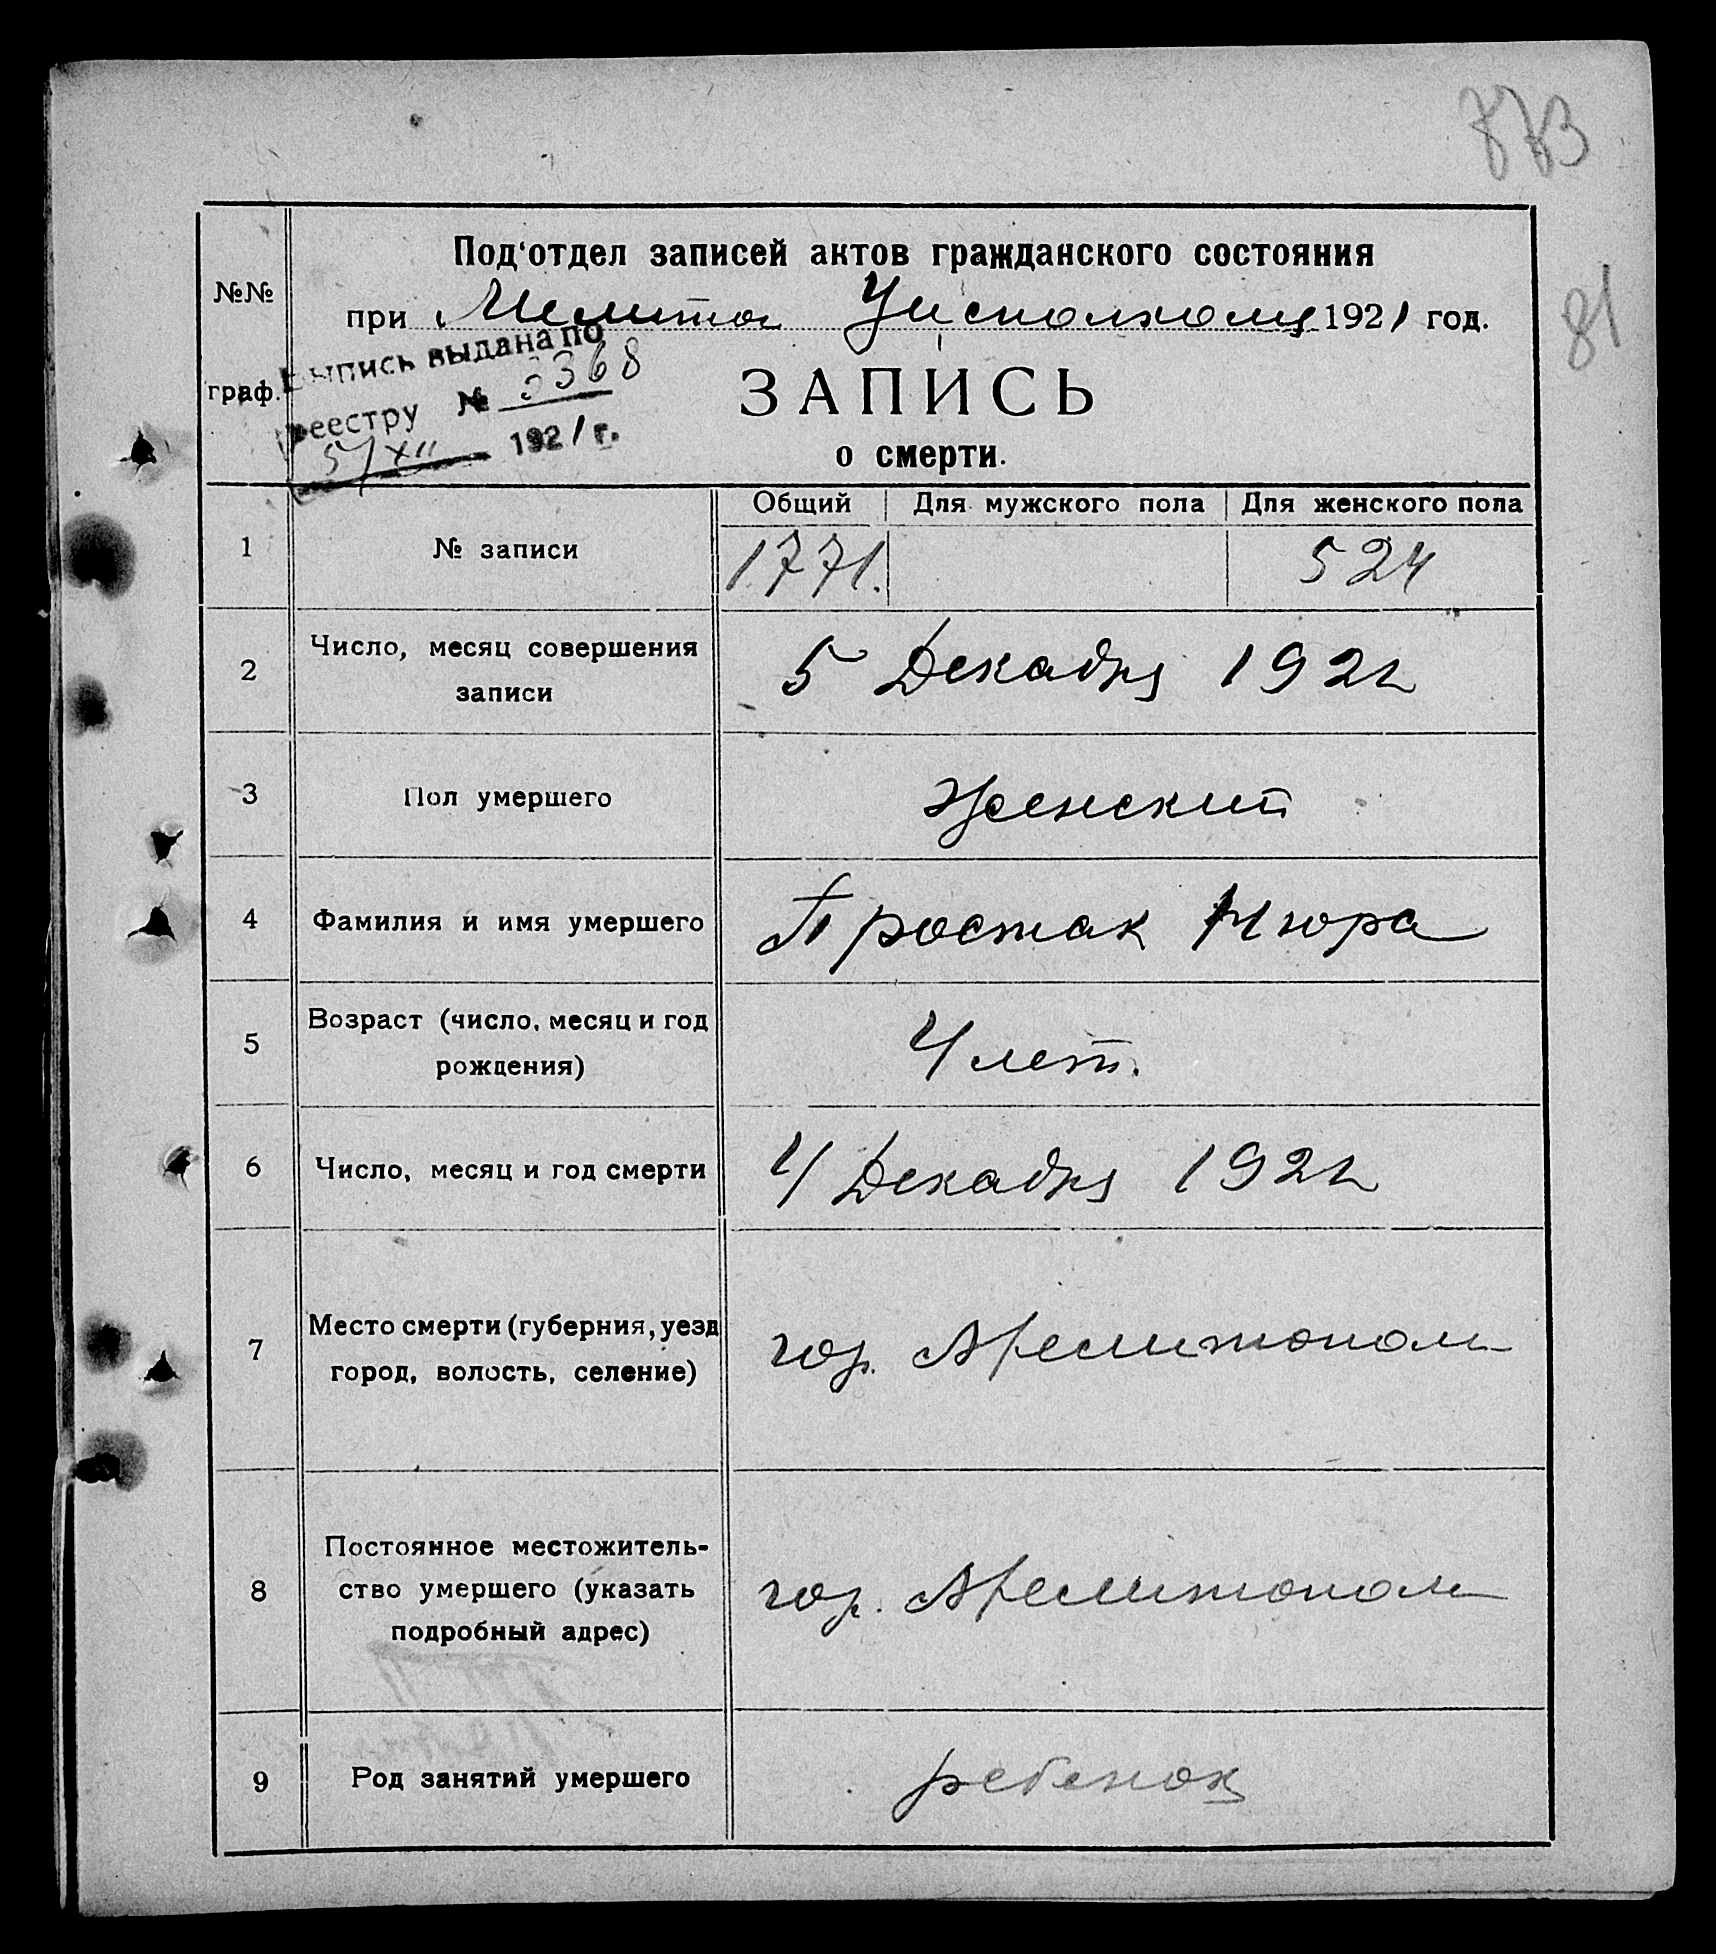 873
81
№№
граф.
Под'отдел записей актов гражданского состояния
при Мелитоп Уисполкому 1921 год.
Выпись выдана по
реестру № 3368
5/XII 1921 г.
ЗАПИСЬ
о смерти.
Общий Для мужского пола Для женского пола
1 № записи 1771. 524
2 Число, месяц совершения
записи
5 Декабря 1921
3 Пол умершего Женский
4 Фамилия и имя умершего Простак Нюра
5 Возраст (число, месяц и год
рождения)
4 лет.
6 Число, месяц и год смерти 4 Декабря 1921
7 Место смерти (губерния, уезд
город, волость, селение)
гор. Мелитополь
8 Постоянное местожитель-
ство умершего (указать
подробный адрес)
гор. Мелитополь
9 Род занятий умершего ребенок